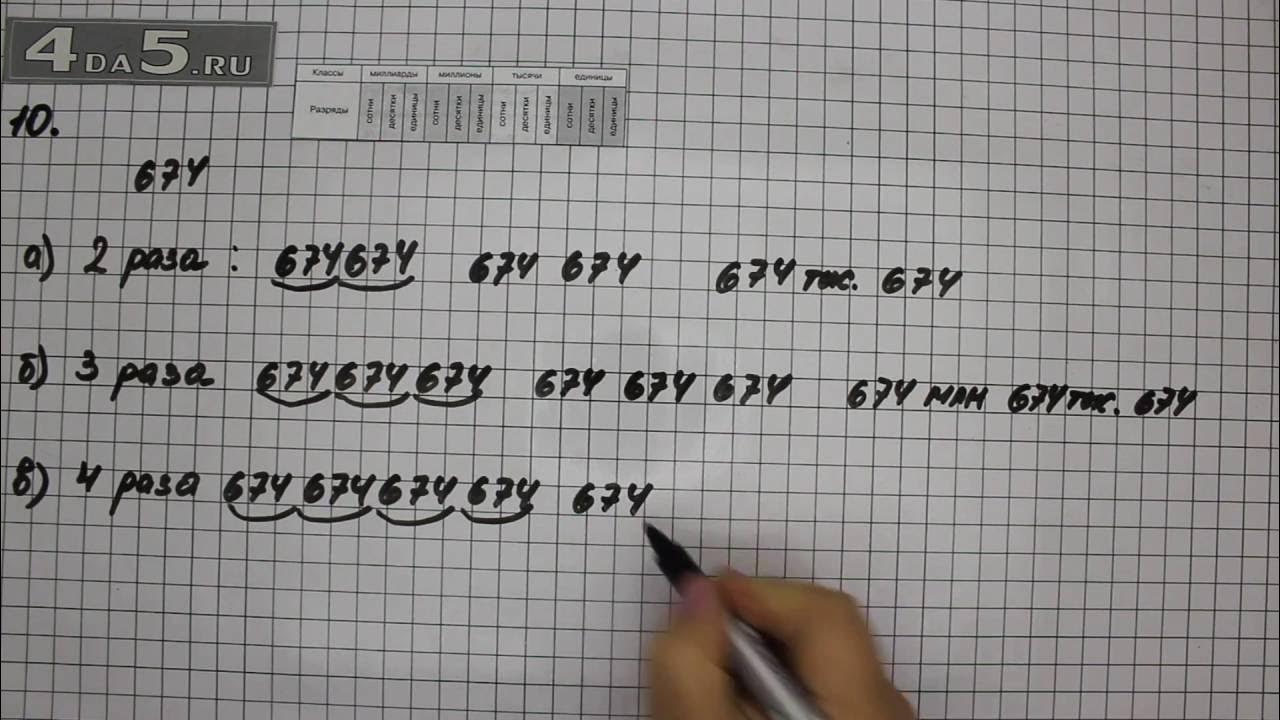 4DA5.RU
Классы миллиарды миллионы тысячи единицы
Разряды сотни десятки единицы сотни десятки единицы сотни десятки единицы сотни десятки единицы
10.
674
а) 2 раза : 674674 674 674 674 тыс. 674
б) 3 раза 674674674 674 674 674 674 млн 674 тыс. 674
в) 4 раза 674674674674 674